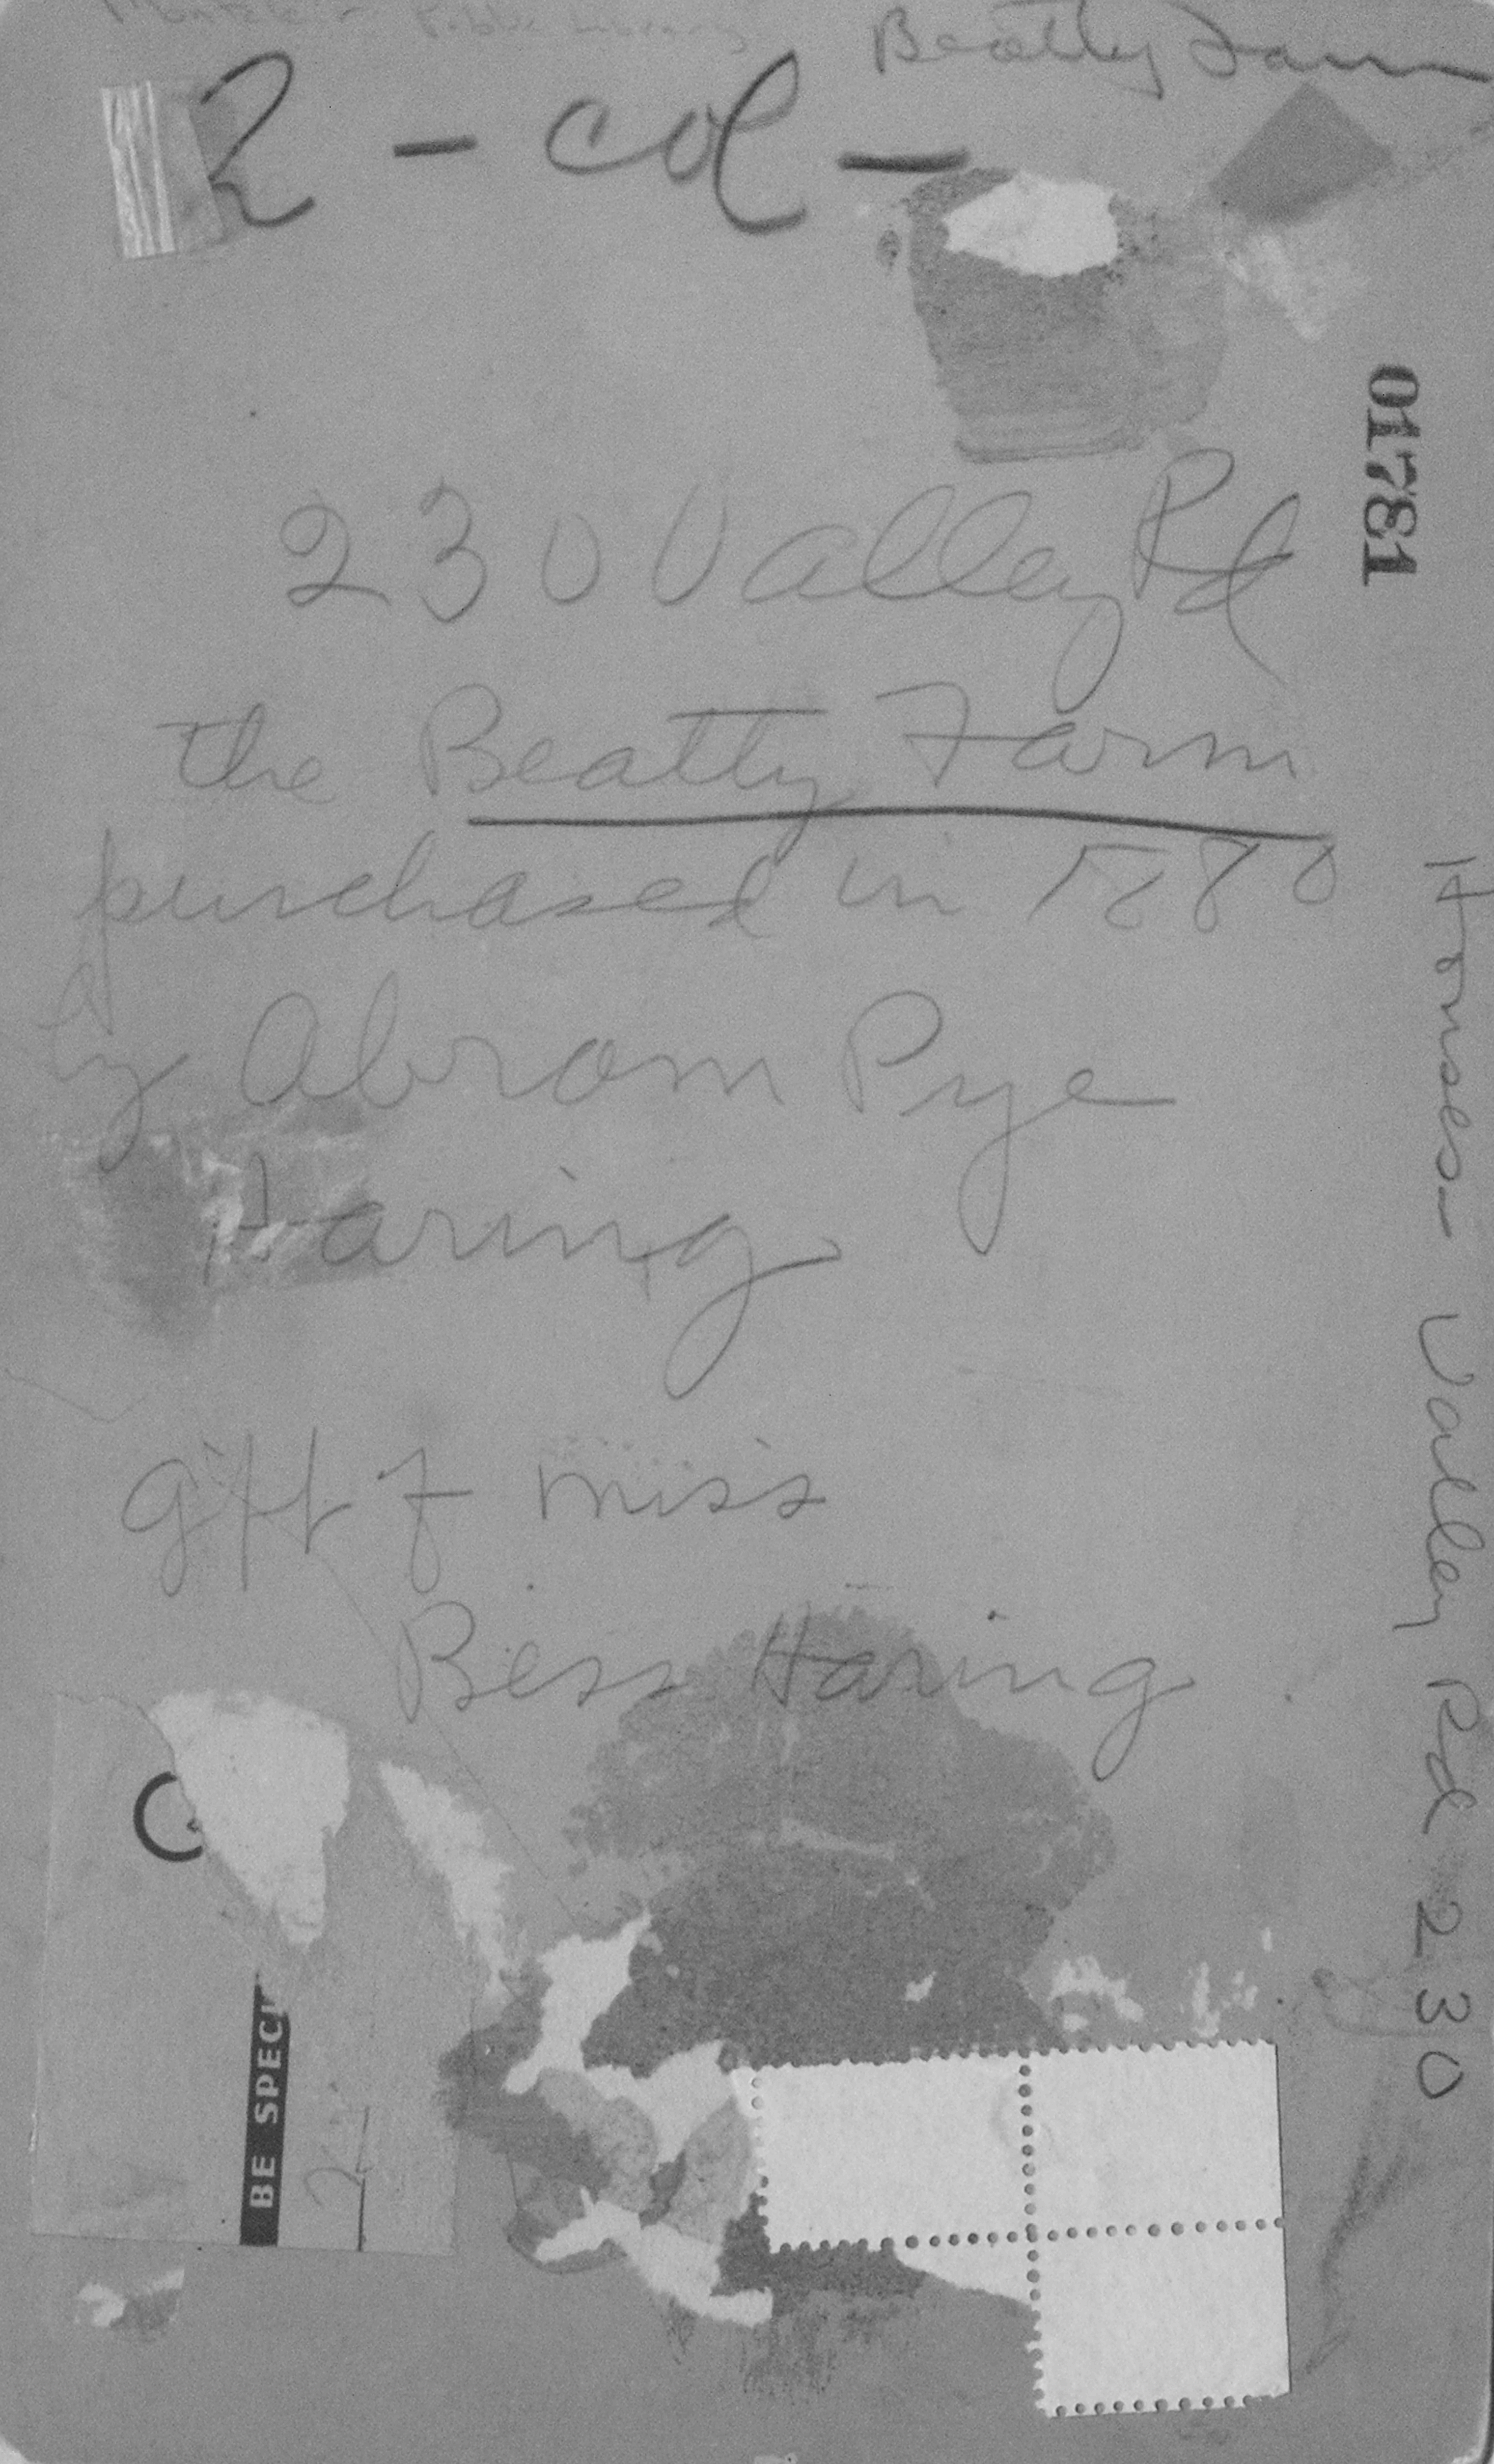 Montclair Public Library
Beatty Farm
2 - col -
01781
230 Valley Rd
the Beatty Farm
purchased in 1880
by Abrom Pye
Haring
gift of miss
Bess Haring
Houses - Valley Rd 230
BE SPECI